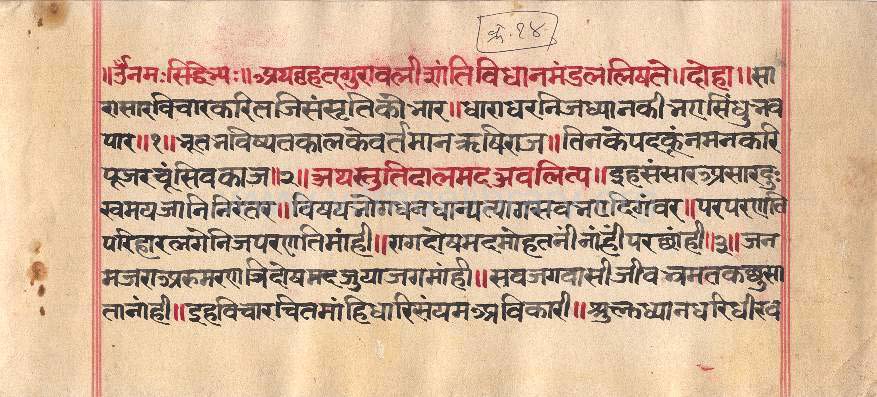 क्र. १४
॥ उँ नमः सिद्धेभ्यः ॥ अथ वृहत गुरावली शांति विधान मंडल लिष्यते ॥ दोहा ॥ सा
रासार विचार करि तजि संसृति कौ भार ॥ धाराधर निज ध्यान की भए सिंधु भव
पार ॥ १ ॥ भूत भविष्यत काल के वर्तमान ऋषिराज ॥ तिनके पद कूं नमन करि
पूज रचूं सिव काज ॥ २ ॥ अथ स्तुति दाल मद अवलिप्त ॥ इह संसार असार दुः
खमय जानि निरंतर ॥ विषय भोग धन धान्य त्याग सब भए दिगंवर ॥ पर परणति
परिहार लगे निज परणति मांही ॥ राग दोष मद मोह तनी नांही परछांही ॥ ३ ॥ जन
म जरा अरु मरण त्रिदोष मद जुया जग मांही ॥ सव जगवासी जीव भ्रमत कछु सा
ता नांही ॥ इह विचार चित मांहि धारि संयम अविकारी ॥ शुक्ल ध्यान धरि धीर व